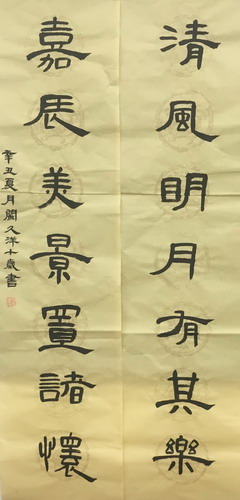 清風眀月有其樂
嘉辰美景置諸懷
辛丑夏月閻久洋十歲書